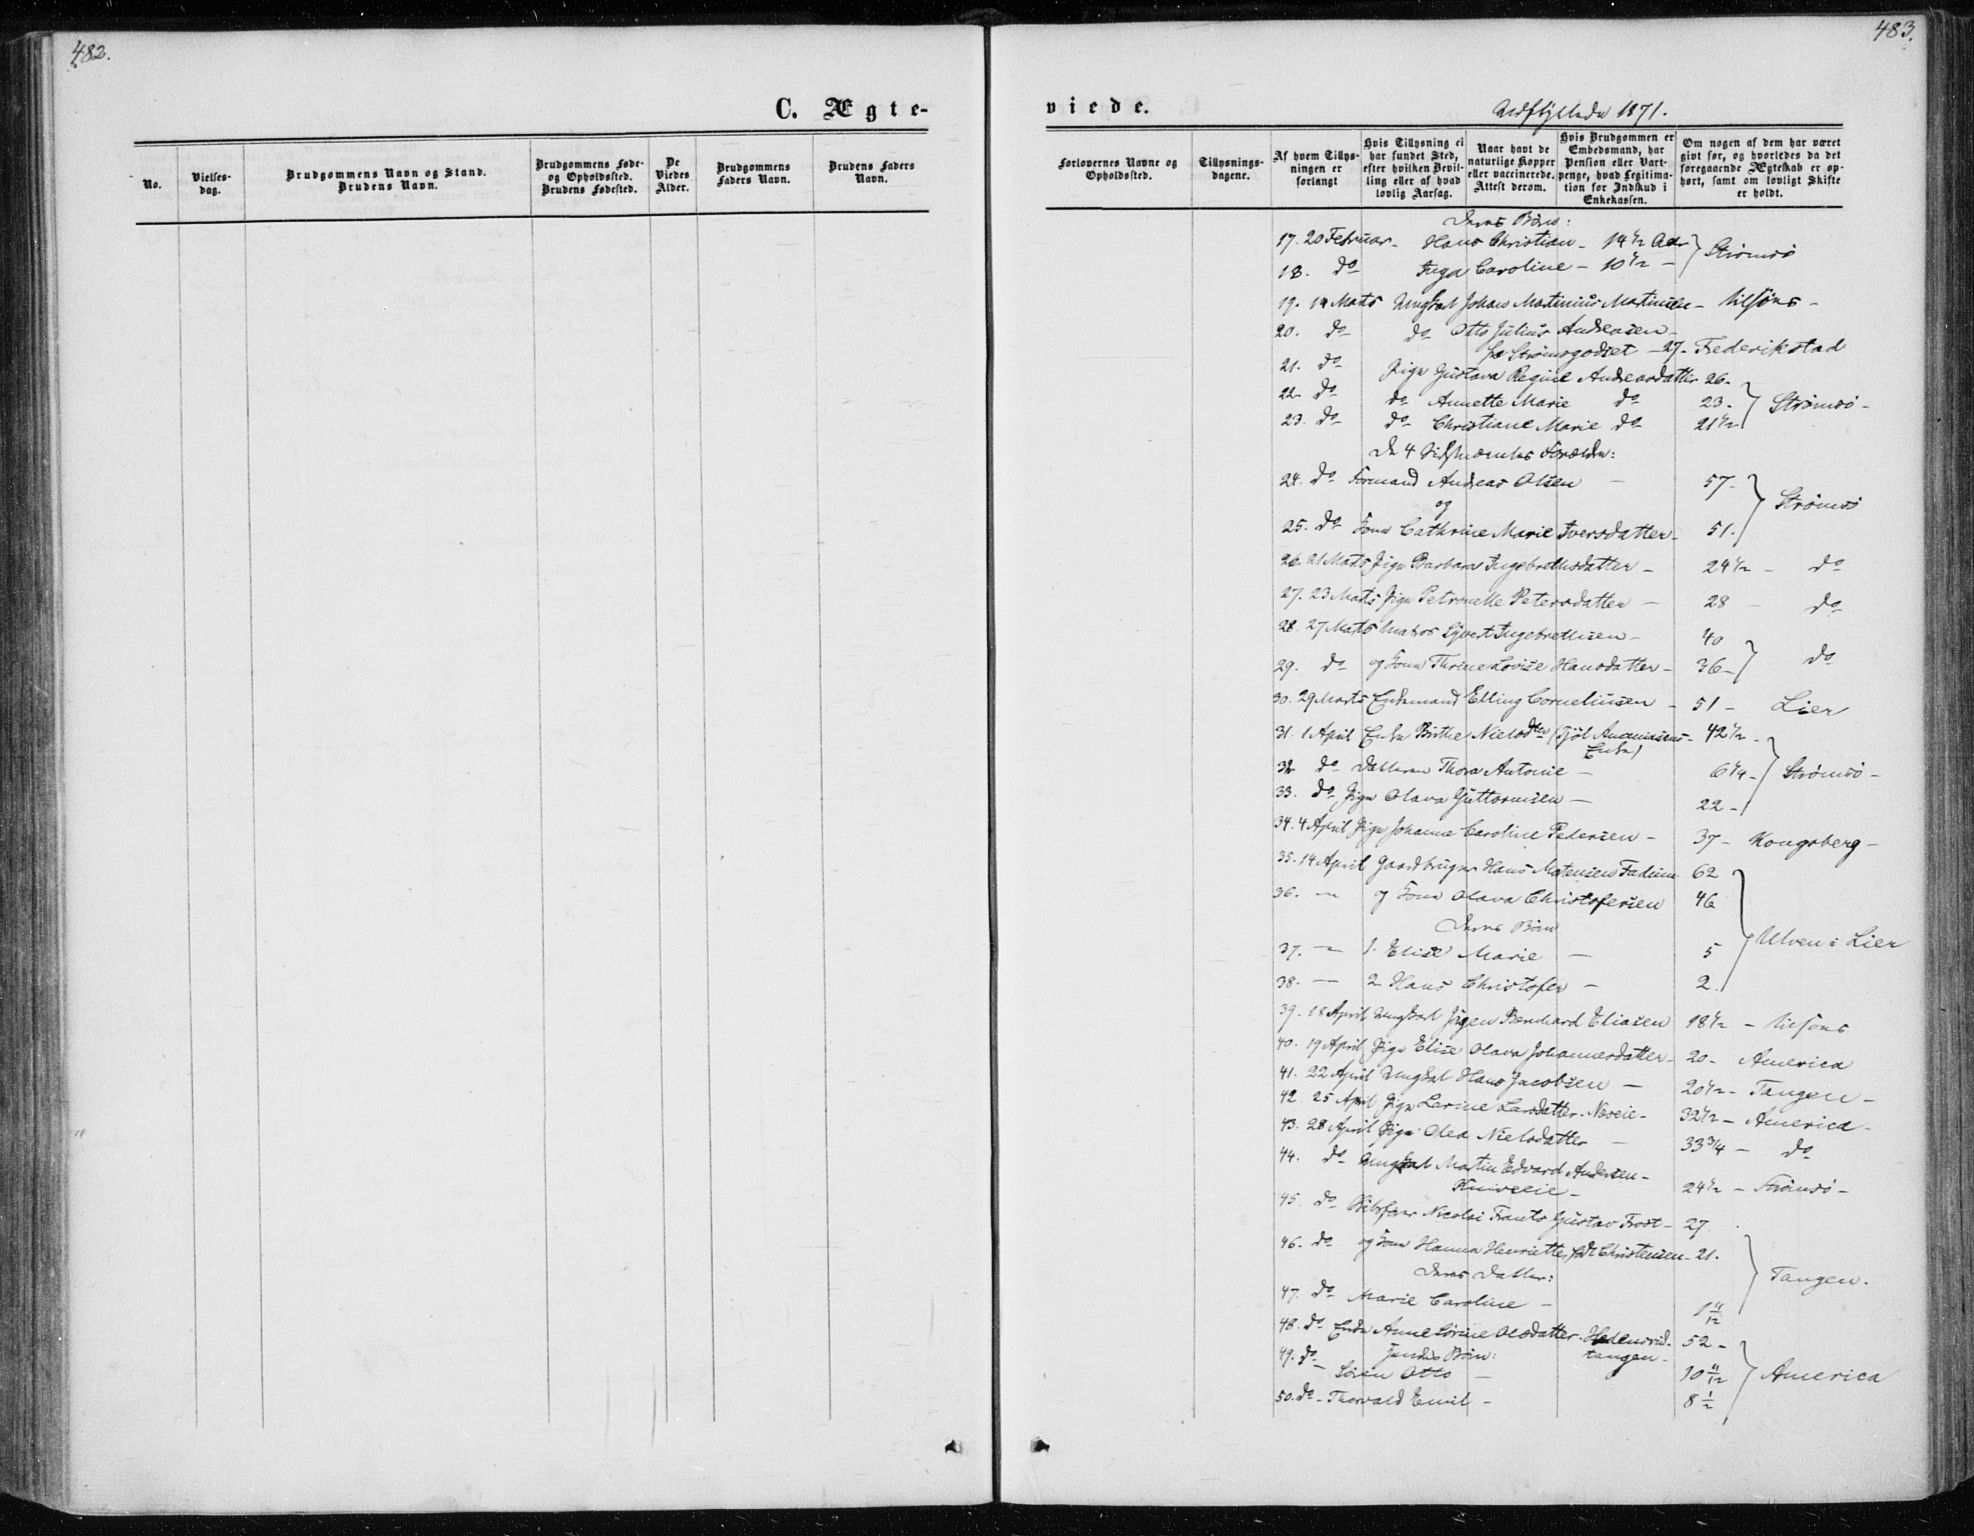 482.
C. Ægte-
No.
Vielses-
dag.
Brudgommens Navn og Stand.
Brudens Navn.
Brudgommens Føde-
og Opholdssted.
Brudens Fødested.
De
Viedes
Alder.
Brudgommens
Faders Navn.
Brudens Faders
Navn.
483.
viede.
Udflyttede 1871.
Forlovernes Navne og
Opholdssted.
Tillysnings-
dagene.
Af hvem Tillys-
ningen er
forlangt
Hvis Tillysning ei
har fundet Sted,
efter hvilken Bevil-
ling eller af hvad
lovlig Aarsag.
Naar havt de
naturlige Kopper
eller vaccinerede.
Attest derom.
Hvis Brudgommen er
Embedsmand, har
Pension eller Vart-
penge, hvad Legitima-
tion for Indskud i
Enkekassen.
Om nogen af dem har været
givt før, og hvorledes da det
foregaaende Ægteskab er op-
hørt, samt om lovligt Skifte
er holdt.
Deres Børn:
17. 20 Februar - Hans Christian - 14 1/2 Aar
18. do Inga Caroline - 10 1/2 - Strømsø
19. 14 Marts Ungkarl Johan Martinius Martinsen -
20. do do Otto Julius Andreasen -
fra Strømsgodset - 27 - Frederikstad
21. do Pige Gustava Regine Andreasdatter 26 -
22. do do Annette Marie do 23 - Strømsø -
23. do do Christiane Marie do 21 1/2
De 4 Sidstnævntes Forældre:
24. do Formand Andreas Olsen - 57 -
og Strømsø
25. do Kone Cathrine Marie Iversdatter - 51.
26. 21 Marts Pige Barbara Ingebrethsdatter - 24 1/2 - do
27. 23 Marts Pige Petronelle Petersdatter - 28 - do
28. 27 Marts Matros Syvert Ingebrethsen - 40
29. do og Kone Thrine Lovise Hansdatter - 36 - do
30. 29 Marts Enkemand Elling Corneliusen - 51 - Lier
31. 1 April Enke Birthe Nielsdtr 42 1/2 -
Enke)
32 do Datteren Thora Antonie - 6 1/4 - Strømsø -
33. do Pige Olava Guttormsen - 22 -
34. 4 April Pige Johanne Caroline Pedersen - 37 - Kongsberg -
35. 14 April Gaardbruger Hans Mortensen Fadum 62
36. - og Kone Olava Christofersen 46
Deres Børn
37. - 1. Elise Marie - 5 Ulven i Lier
38. - 2 Hans Christofer - 2.
39. 18 April Ungkarl Jørgen Bernhard Eliasen 18 1/2 -
40. 19 April Pige Elise Olava Johannesdatter - 20 - America
41. 22 April Ungkarl Hans Jacobsen - 20 1/2 - Tangen -
42. 25 April Pige Larine Larsdatter. 32 1/2 - America -
43. 28 April Pige Olea Nielsdatter - 33 3/4 - do
44. do Ungkarl Martin Edvard Andersen -
24 1/2 - Strømsø -
45. do Nicolai Frants Gustav Frost - 27
46. do og Kone Hanna Henriette, født Christensen - 21.
Deres Datter: Tangen.
47. do Marie Caroline - 1 11/12
48. do Enke Anne Sørine Olsdatter. 52 -
tangen -
49. do Søren Otto - 10 11/12 America
50. do - Thorvald Emil - 8 1/2